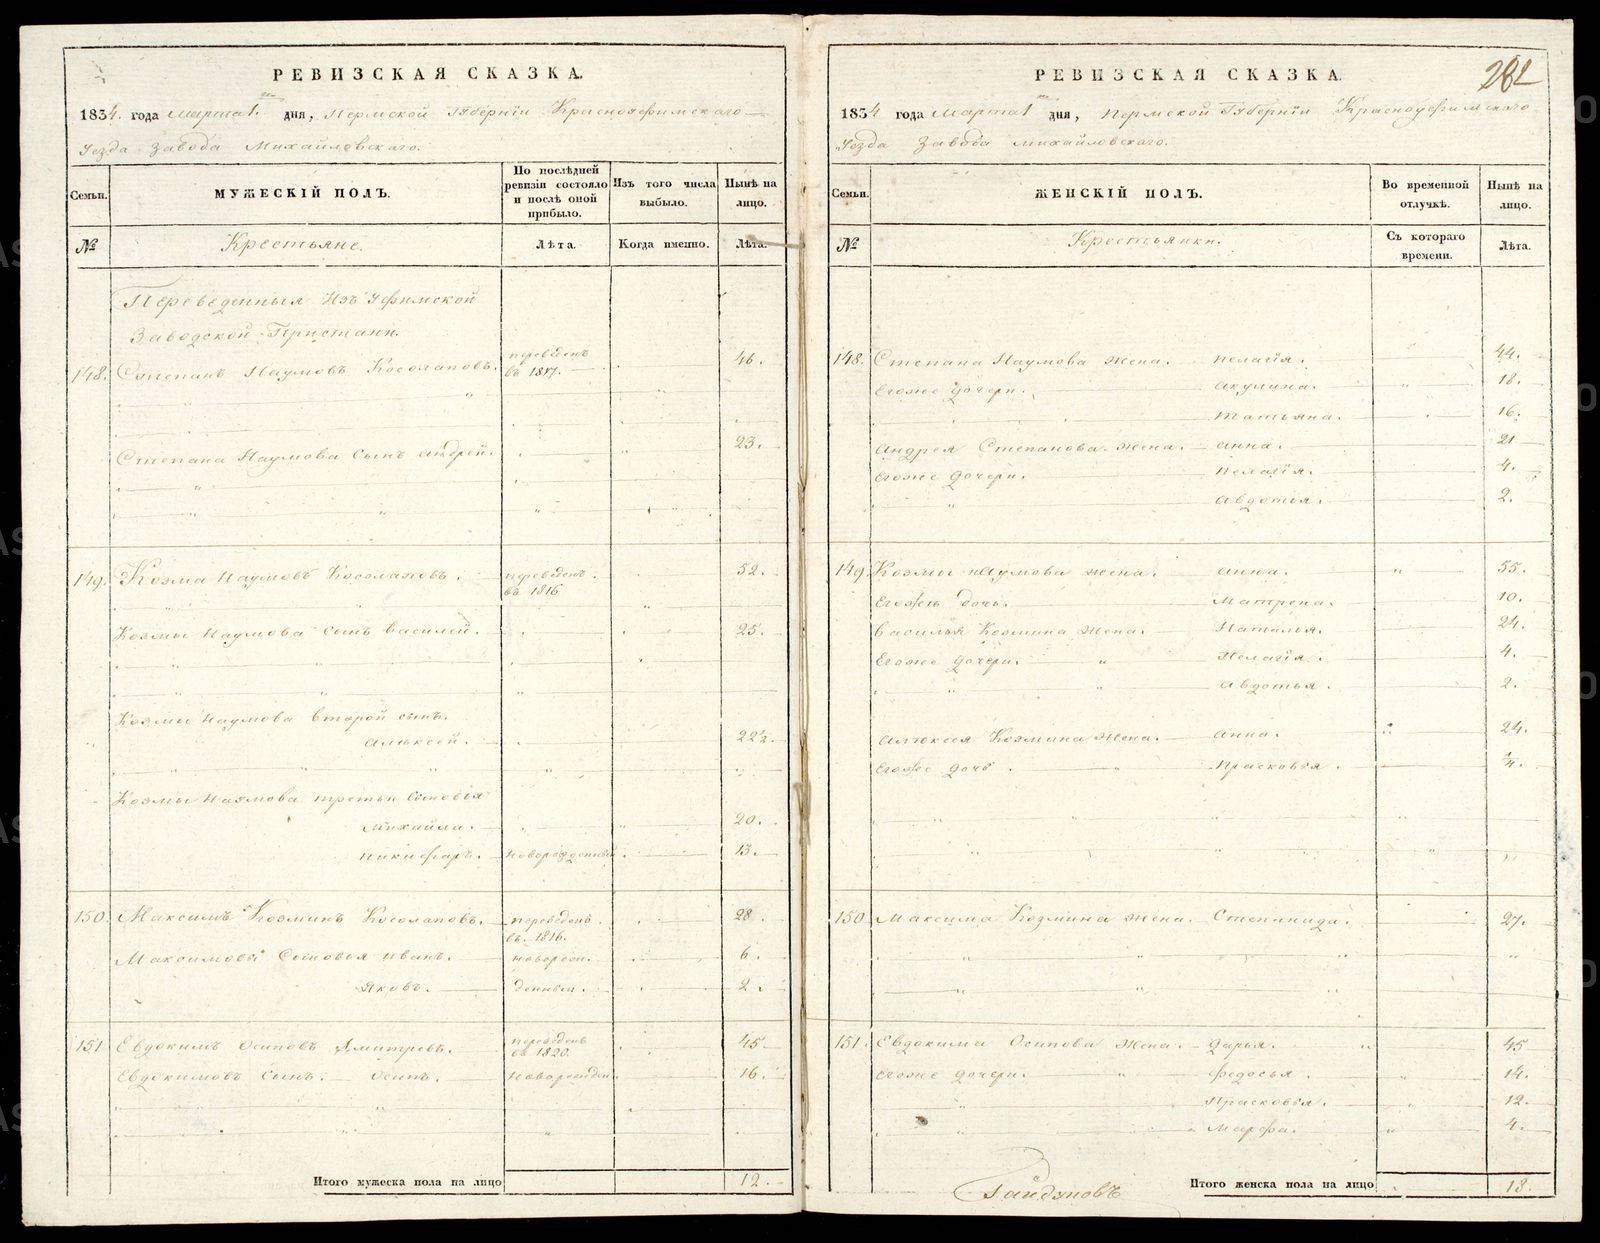 РЕВИЗСКАЯ СКАЗКА.
1834. года марта 1. дня, Пермской Губернїи Красноуфимскаго
Уезда Завода Михайловскаго.
Семьи. МУЖЕСКІЙ ПОЛЪ. По послѣдней ревизіи состояло и послѣ оной прибыло. Изъ того числа выбыло. Нынѣ на лицо.
№ Крестьяне. Лѣта. Когда именно. Лѣта.
Переведенныя Изъ Уфимской
Заводской Пристани.
148. Степанъ Наумовъ Косолаповъ. переведенъ въ 1817. 46.
Степана Наумова Сынъ андрей. 23.
149. Козма Наумовъ Косолаповъ. переведенъ. въ 1816 52.
Козмы Наумова Сынъ василей. 25.
Козмы Наумова второй сынъ.
алексей. 22½.
Козмы Наумова третьи Сыновья
Михайла. 20.
никифаръ. новорожденный. 13.
150. Максимъ Козминъ Косолаповъ. переведенъ. въ. 1816. 28.
Максимовы Сыновья иванъ. новорож. 6.
Яковъ. денныя. 2.
151 Евдокимъ Осиповъ Дмитревъ. переведенъ въ 1820. 45.
Евдокимовъ Сынъ. Осипъ. Новорожден. 16.
Итого мужеска пола на лицо 12.
281
РЕВИЗСКАЯ СКАЗКА.
1834 года Марта 1 дня, Пермской Губернїи Красноуфимскаго
Уезда Завода михайловскаго.
Семьи. ЖЕНСКІЙ ПОЛЪ. Во временной отлучкѣ. Нынѣ на лицо.
№ Крестьянки. Съ котораго времени. Лѣта.
148. Степана Наумова жена. пелагїя. 44.
Егоже дочери. акулина. 18.
татьяна. 16.
андрея Степанова жена. анна. 21
Егоже дочери. пелагїя. 4.
авдотья. 2.
149. Козмы наумова жена. анна. 55.
Егожъ дочь. Матрена. 10.
василья Козмина жена. Наталья. 24.
Егоже дочери. Пелагїя. 4.
авдотья. 2.
алексея Козмина жена. анна. 24.
Егоже дочь. Прасковья.
150. Максима Козмина жена. Степанида. 27.
151. Евдокима Осипова жена. дарья. 45
Егоже дочери. федосья. 14.
Прасковья. 12.
Марфа. 4.
Итого женска пола на лицо 18.